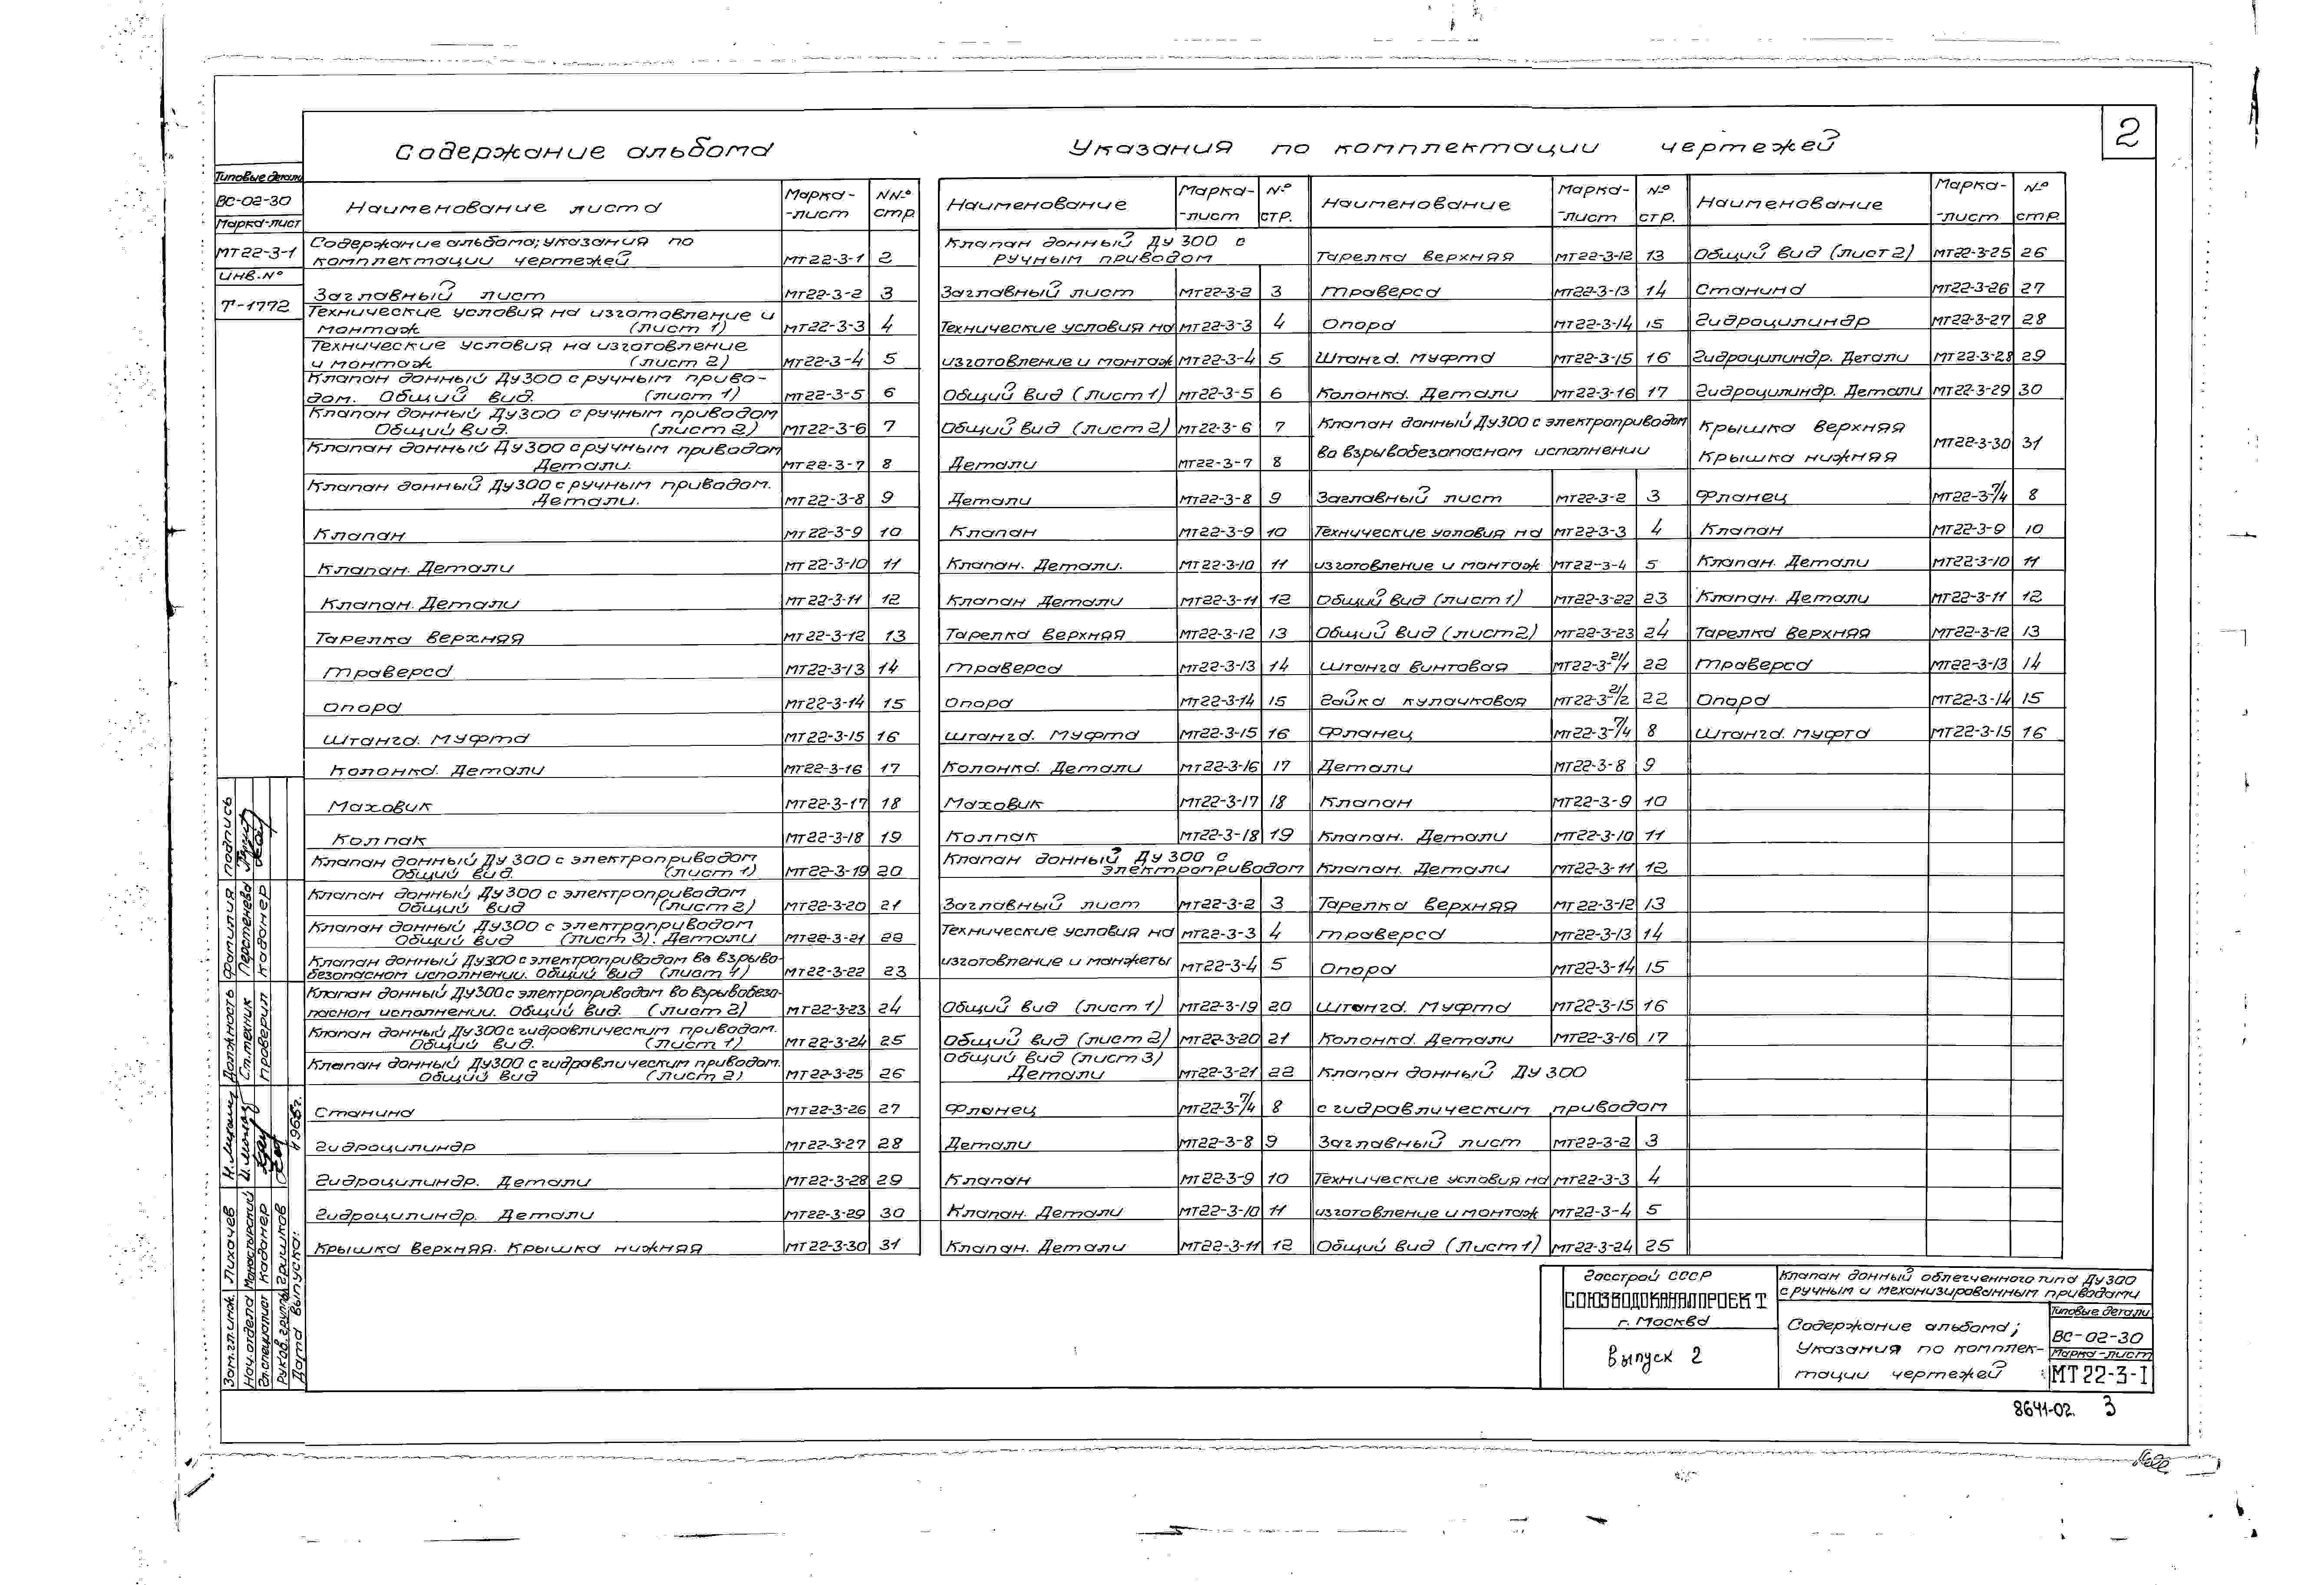 2
Содержание альбома
Указания по комплектации чертежей
Типовые детали
ВС-02-30
Марка-лист
МТ22-3-1
Инв.№
Т-1772
Наименование листа Марка-лист NN° стр
Содержание альбома; указания по
комплектации чертежей МТ22-3-1 2
Заглавный лист МТ22-3-2 3
Технические условия на изготовление и
монтаж (лист 1) МТ22-3-3 4
Технические условия на изготовление
и монтаж (лист 2) МТ22-3-4 5
Клапан донный Ду300 с ручным приво-
дом. Общий вид. (лист 1) МТ22-3-5 6
Клапан донный Ду300 с ручным приводом
Общий вид. (лист 2) МТ22-3-6 7
Клапан донный Ду300 с ручным приводом
Детали. МТ22-3-7 8
Клапан донный Ду300 с ручным приводом.
Детали. МТ22-3-8 9
Клапан МТ22-3-9 10
Клапан. Детали МТ22-3-10 11
Клапан. Детали МТ22-3-11 12
Тарелка верхняя МТ22-3-12 13
Траверса МТ22-3-13 14
Опора МТ22-3-14 15
Штанга. Муфта МТ22-3-15 16
Колонка. Детали МТ22-3-16 17
Маховик МТ22-3-17 18
Колпак МТ22-3-18 19
Клапан донный Ду 300 с электроприводом
Общий вид. (лист 1) МТ22-3-19 20
Клапан донный Ду300 с электроприводом
Общий вид (лист 2) МТ22-3-20 21
Клапан донный Ду300 с электроприводом
Общий вид (лист 3). Детали МТ22-3-21 22
Клапан донный Ду300 с электроприводом во взрыво-
безопасном исполнении. Общий вид (лист 1) МТ22-3-22 23
Клапан донный Ду300 с электроприводом во взрывобезо-
пасном исполнении. Общий вид. (лист 2) МТ22-3-23 24
Клапан донный Ду300 с гидравлическим приводом.
Общий вид. (лист 1) МТ22-3-24 25
Клапан донный Ду300 с гидравлическим приводом.
Общий вид (лист 2) МТ22-3-25 26
Станина МТ22-3-26 27
Гидроцилиндр МТ22-3-27 28
Гидроцилиндр. Детали МТ22-3-28 29
Гидроцилиндр. Детали МТ22-3-29 30
Крышка верхняя. Крышка нижняя МТ22-3-30 31
Наименование Марка-лист № стр.
Клапан донный Ду 300 с
ручным приводом
Заглавный лист МТ22-3-2 3
Технические условия на МТ22-3-3 4
изготовление и монтаж МТ22-3-4 5
Общий вид (лист 1) МТ22-3-5 6
Общий вид (лист 2) МТ22-3-6 7
Детали МТ22-3-7 8
Детали МТ22-3-8 9
Клапан МТ22-3-9 10
Клапан. Детали. МТ22-3-10 11
Клапан Детали МТ22-3-11 12
Тарелка верхняя МТ22-3-12 13
Траверса МТ22-3-13 14
Опора МТ22-3-14 15
Штанга. Муфта МТ22-3-15 16
Колонка. Детали МТ22-3-16 17
Маховик МТ22-3-17 18
Колпак МТ22-3-18 19
Клапан донный Ду 300 с
электроприводом
Заглавный лист МТ22-3-2 3
Технические условия на МТ22-3-3 4
изготовление и манжеты МТ22-3-4 5
Общий вид (лист 1) МТ22-3-19 20
Общий вид (лист 2) МТ22-3-20 21
Общий вид (лист 3)
Детали МТ22-3-21 22
Фланец МТ22-3-7/4 8
Детали МТ22-3-8 9
Клапан МТ22-3-9 10
Клапан. Детали МТ22-3-10 11
Клапан. Детали МТ22-3-11 12
Наименование Марка-лист № стр.
Тарелка верхняя МТ22-3-12 13
Траверса МТ22-3-13 14
Опора МТ22-3-14 15
Штанга. Муфта МТ22-3-15 16
Колонка. Детали МТ22-3-16 17
Клапан донный Ду300 с электроприводом
во взрывобезопасном исполнении
Заглавный лист МТ22-3-2 3
Технические условия на МТ22-3-3 4
изготовление и монтаж МТ22-3-4 5
Общий вид (лист 1) МТ22-3-22 23
Общий вид (лист 2) МТ22-3-23 24
Штанга винтовая МТ22-3-21/1 22
Гайка кулачковая МТ22-3-21/2 22
Фланец МТ22-3-7/4 8
Детали МТ22-3-8 9
Клапан МТ22-3-9 10
Клапан. Детали МТ22-3-10 11
Клапан. Детали МТ22-3-11 12
Тарелка верхняя МТ22-3-12 13
Траверса МТ22-3-13 14
Опора МТ22-3-14 15
Штанга. Муфта МТ22-3-15 16
Колонка. Детали МТ22-3-16 17
Клапан донный Ду 300
с гидравлическим приводом
Заглавный лист МТ22-3-2 3
Технические условия на МТ22-3-3 4
изготовление и монтаж МТ22-3-4 5
Общий вид (Лист 1) МТ22-3-24 25
Наименование Марка-лист № стр.
Общий вид (лист 2) МТ22-3-25 26
Станина МТ22-3-26 27
Гидроцилиндр МТ22-3-27 28
Гидроцилиндр. Детали МТ22-3-28 29
Гидроцилиндр. Детали МТ22-3-29 30
Крышка верхняя
Крышка нижняя МТ22-3-30 31
Фланец МТ22-3-7/4 8
Клапан МТ22-3-9 10
Клапан. Детали МТ22-3-10 11
Клапан. Детали МТ22-3-11 12
Тарелка верхняя МТ22-3-12 13
Траверса МТ22-3-13 14
Опора МТ22-3-14 15
Штанга. Муфта МТ22-3-15 16
Должность Фамилия подпись
Ст.техник Перстенева
Проверил Каданер
Зам.гл.инж. Лихачев
Нач.отдела Монастырский
Гл.специалист Каданер
Руков.группы Гришков
Дата выпуска: 1966г.
Госстрой СССР
СОЮЗВОДОКАНАЛПРОЕКТ
г. Москва
Выпуск 2
Клапан донный облегченного типа Ду300
с ручным и механизированным приводами
Содержание альбома;
Указания по комплек-
тации чертежей
Типовые детали
ВС-02-30
Марка-лист
МТ22-3-I
8641-02. 3